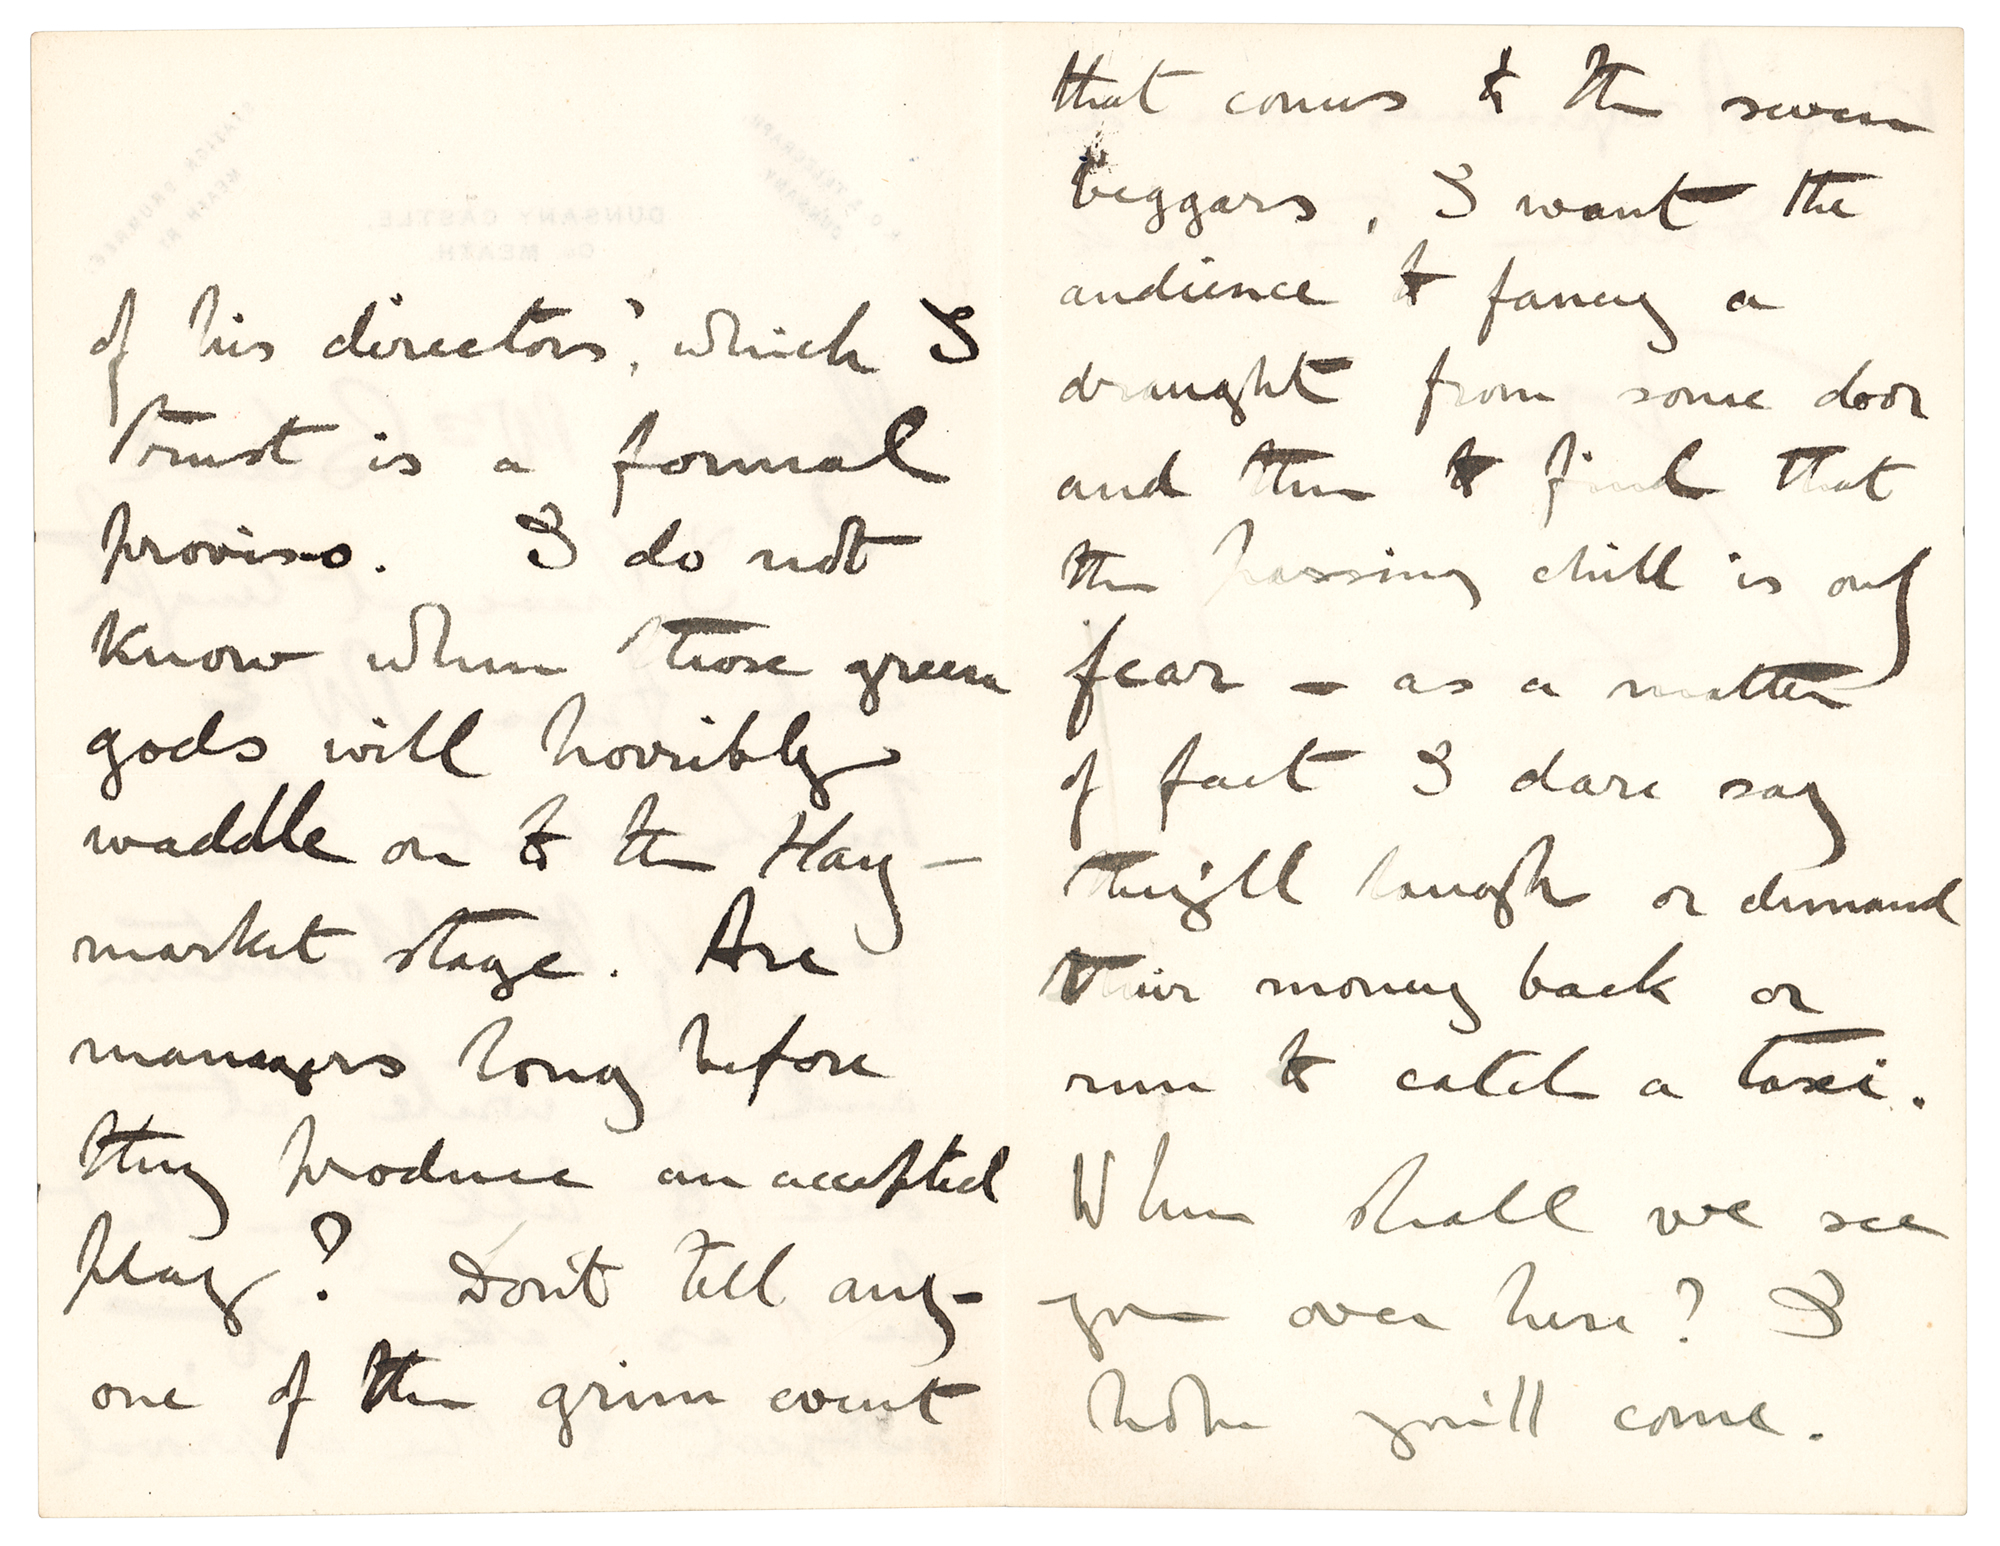 of his directors', which I
trust is a formal
proviso. I do not
know when those green
gods will horribly
waddle on to the Hay-
market stage. Are
managers long before
they produce an accepted
play? Don't tell any-
one of the grim event
that comes to the seven
beggars, I want the
audience to fancy a
draught from some door
and then to find that
the passing chill is only
fear - as a matter
of fact I dare say
they'll laugh or demand
their money back or
run to catch a taxi.
When shall we see
you over here? I
hope you'll come.
DUNSANY CASTLE,
Co. MEATH.
STATION DRUMREE
MEATH RY
P.O. & TELEGRAPH
DUNSANY